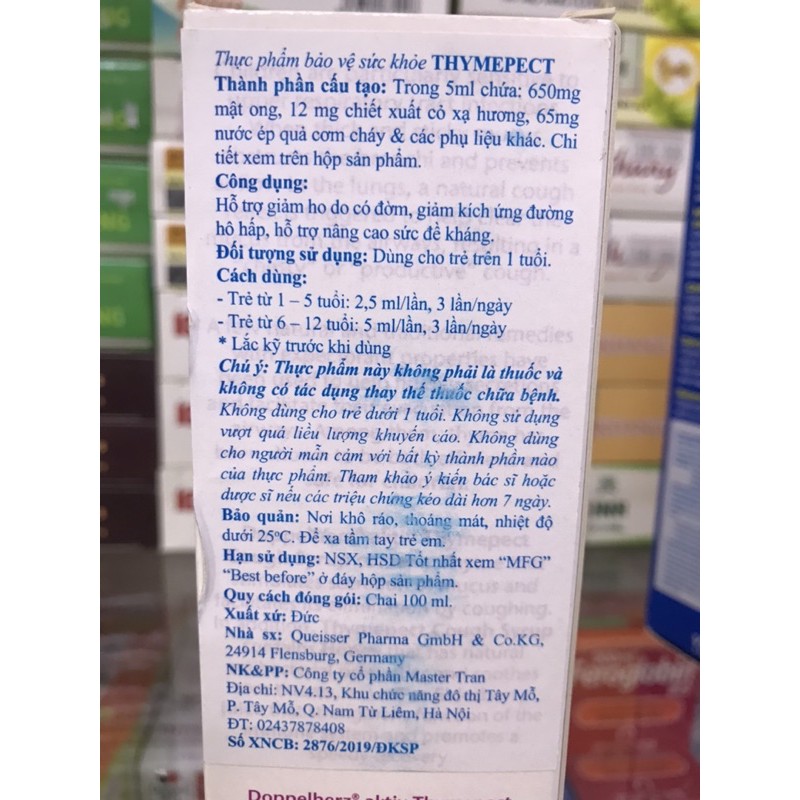 Thực phẩm bảo vệ sức khỏe THYMEPECT
Thành phần cấu tạo: Trong 5ml chứa: 650mg
mật ong, 12 mg chiết xuất cỏ xạ hương, 65mg
nước ép quả cơm cháy & các phụ liệu khác. Chi
tiết xem trên hộp sản phẩm.
Công dụng:
Hỗ trợ giảm ho do có đờm, giảm kích ứng đường
hô hấp, hỗ trợ nâng cao sức đề kháng.
Đối tượng sử dụng: Dùng cho trẻ trên 1 tuổi.
Cách dùng:
- Trẻ từ 1 – 5 tuổi: 2,5 ml/lần, 3 lần/ngày
- Trẻ từ 6 – 12 tuổi: 5 ml/lần, 3 lần/ngày
* Lắc kỹ trước khi dùng
Chú ý: Thực phẩm này không phải là thuốc và
không có tác dụng thay thế thuốc chữa bệnh.
Không dùng cho trẻ dưới 1 tuổi. Không sử dụng
vượt quá liều lượng khuyến cáo. Không dùng
cho người mẫn cảm với bất kỳ thành phần nào
của thực phẩm. Tham khảo ý kiến bác sĩ hoặc
dược sĩ nếu các triệu chứng kéo dài hơn 7 ngày.
Bảo quản: Nơi khô ráo, thoáng mát, nhiệt độ
dưới 25°C. Để xa tầm tay trẻ em.
Hạn sử dụng: NSX, HSD Tốt nhất xem “MFG”
“Best before” ở đáy hộp sản phẩm.
Quy cách đóng gói: Chai 100 ml.
Xuất xứ: Đức
Nhà sx: Queisser Pharma GmbH & Co.KG,
24914 Flensburg, Germany
NK&PP: Công ty cổ phần Master Tran
Địa chỉ: NV4.13, Khu chức năng đô thị Tây Mỗ,
P. Tây Mỗ, Q. Nam Từ Liêm, Hà Nội
ĐT: 02437878408
Số XNCB: 2876/2019/ĐKSP
Doppelherz® aktiv Thymepect